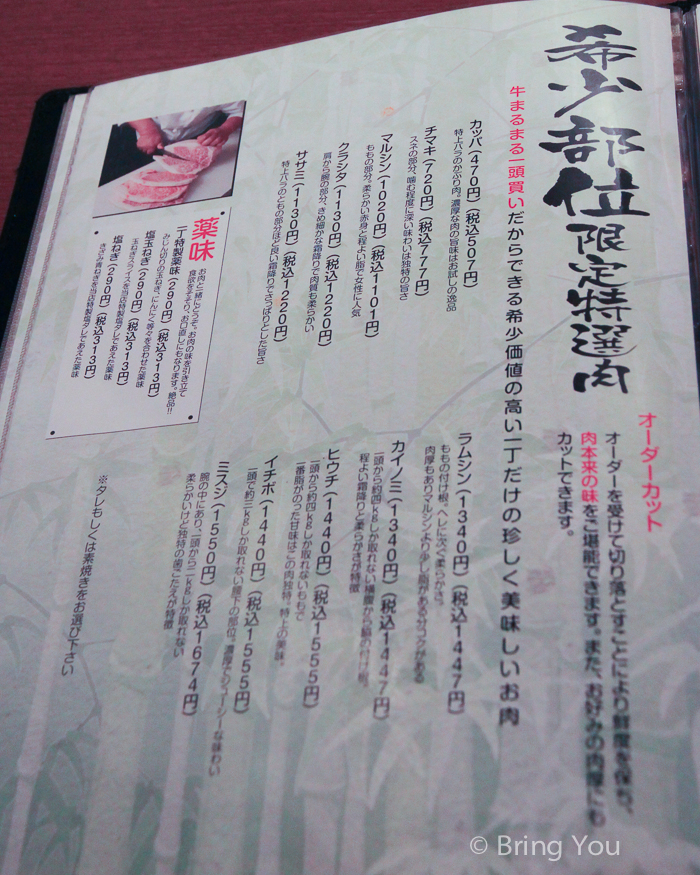 希少部位限定特選肉
オーダーカット
オーダーを受けて切り落とすことにより鮮度を保ち、
肉本来の味をご堪能できます。また、お好みの肉厚にも
カットできます。
牛まるまる一頭買いだからできる希少価値の高い一丁だけの珍しく美味しいお肉
カッパ(470円)(税込507円)
特上バラのかぶり肉。濃厚な肉の旨味はお試しの逸品
チマキ(720円)(税込777円)
スネの部分。噛む程度に深い味わいは独特の旨さ
マルシン(1020円)(税込1101円)
ももの部分。柔らかい赤身と程よい脂で女性に人気
クラシタ(1130円)(税込1220円)
肩から腕の部分。きめ細かな霜降りで肉質も柔らかい
ササミ(1130円)(税込1220円)
特上バラのともの部分ほど良い霜降りでさっぱりとした旨さ
ラムシン(1340円)(税込1447円)
ももの付け根。ヘレに次ぐ柔らかさ。
肉厚もありマルシンより少し脂がある分コクがある
カイノミ(1340円)(税込1447円)
一頭から約四kgしか取れない横腹から脇の付け根。
程よい霜降りと柔らかさが特徴
ヒウチ(1440円)(税込1555円)
一頭から約四kgしか取れないももで
一番脂がのった甘味はこの肉独特。特上の美味。
イチボ(1440円)(税込1555円)
一頭で約三kgしか取れない腰下の部位。濃厚でジューシーな味わい
ミスジ(1550円)(税込1674円)
腕の中にあり、一頭から二kgしか取れない
柔らかいけど独特の歯ごたえが特徴
薬味
お肉と一緒にどうぞ。お肉の味を引き立て
食欲をそそり、お口直しにもなります。絶品!!
一丁特製薬味(290円)(税込313円)
みじん切りの玉ねぎ、にんにく等々を合わせた薬味
塩玉ねぎ(290円)(税込313円)
玉ねぎスライスを当店特製塩ダレであえた薬味
塩ねぎ(290円)(税込313円)
きざみ青ねぎを当店特製塩ダレであえた薬味
※タレもしくは素焼きをお選び下さい
© Bring You